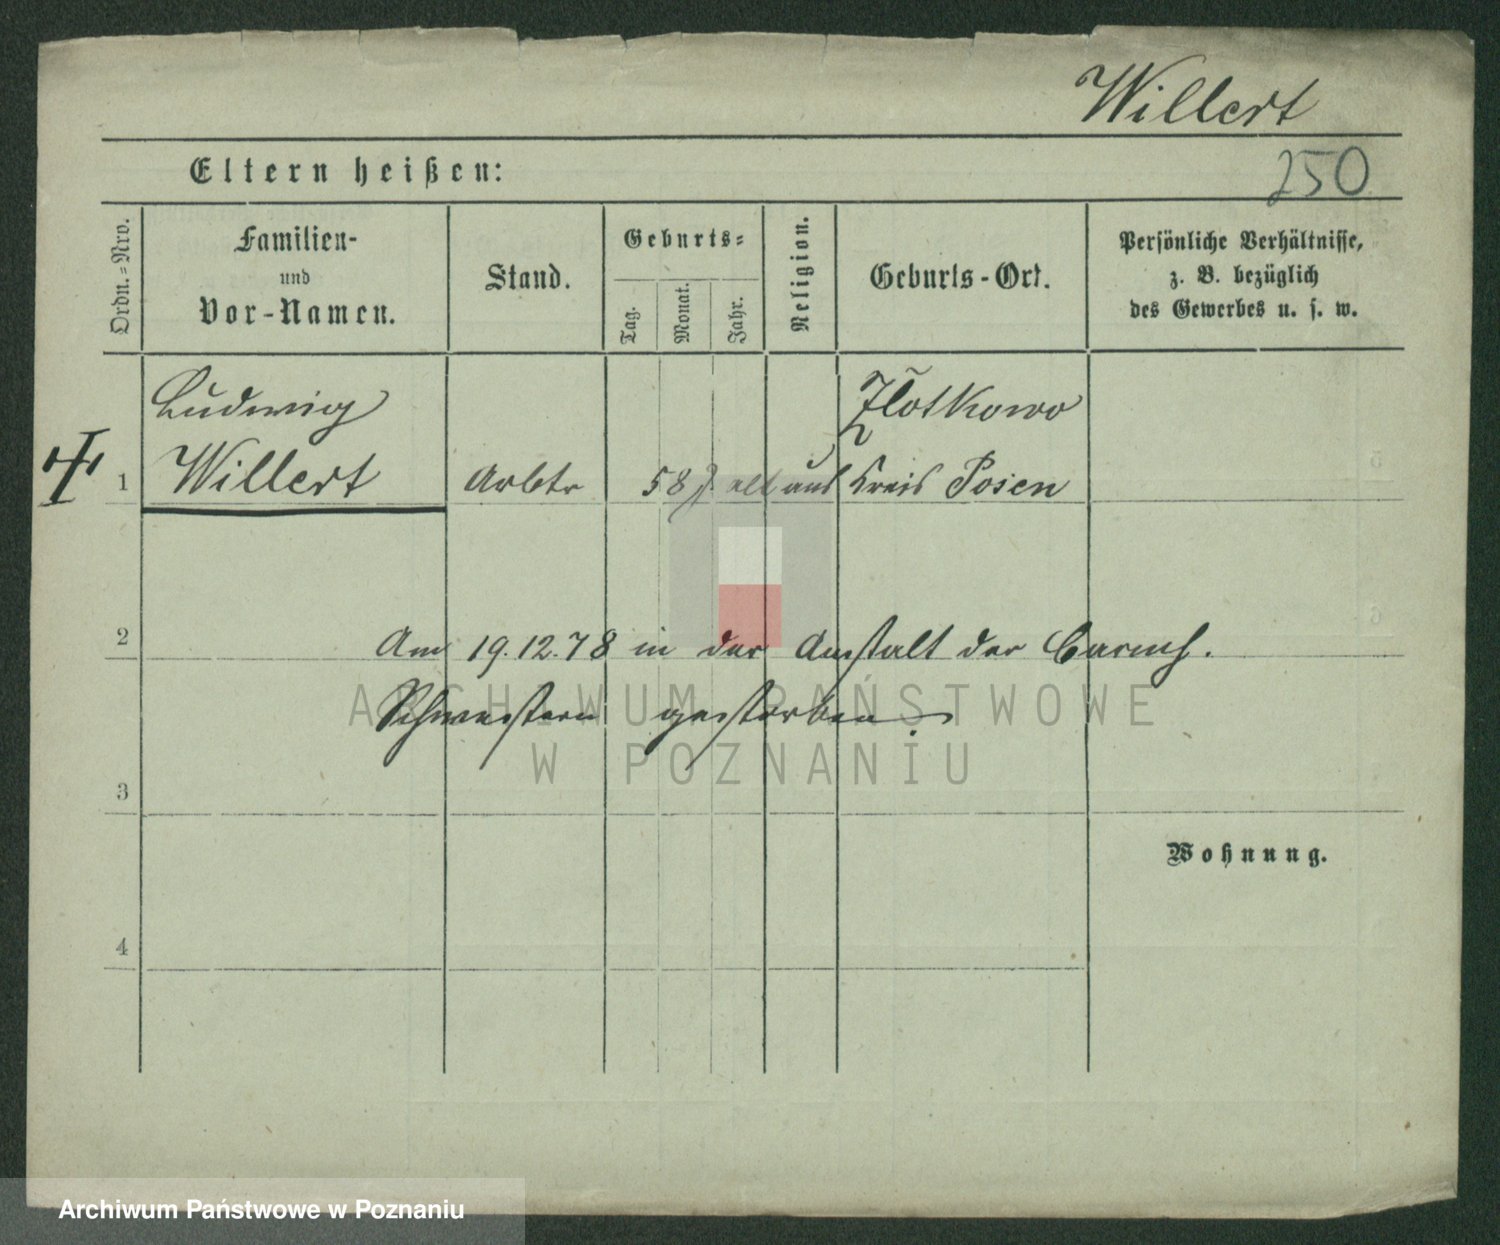 Willert
Eltern heißen:
250
Ordn.=Nro.
Familien-
und
Vor-Namen.
Stand.
Geburts=
Tag.
Monat.
Jahr.
Religion.
Geburts-Ort.
Persönliche Verhältnisse,
z. B. bezüglich
des Gewerbes u. s. w.
Ludwig
Zlotkowo
1 Willert Arbtr 58 J. alt aus Kreis Posen
2
Am 19.12.78 in der Anstalt der barmh.
Schwestern gestorben.
ARCHIWUM PAŃSTWOWE
W POZNANIU
3
Wohnung.
4
Archiwum Państwowe w Poznaniu